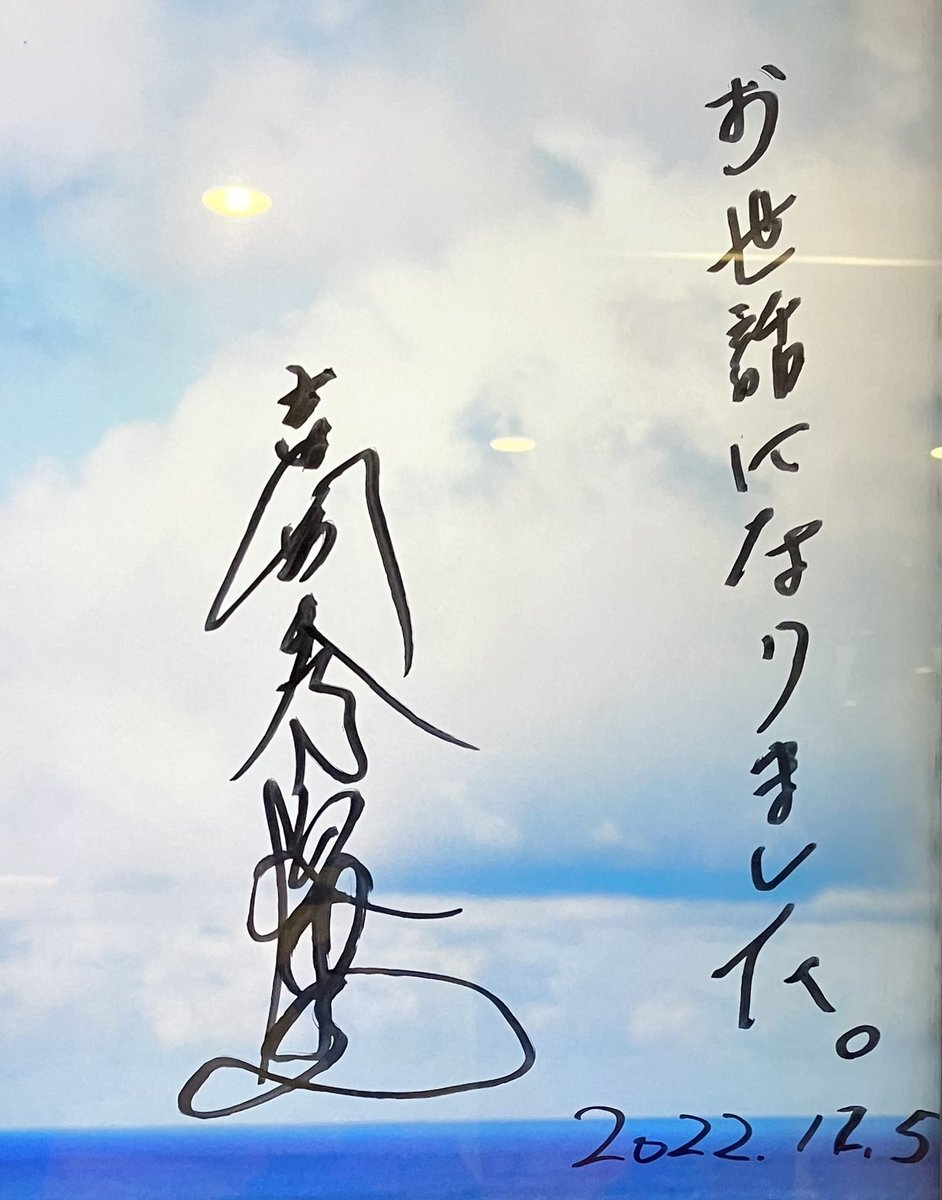 お世話になりました。
2022.12.5